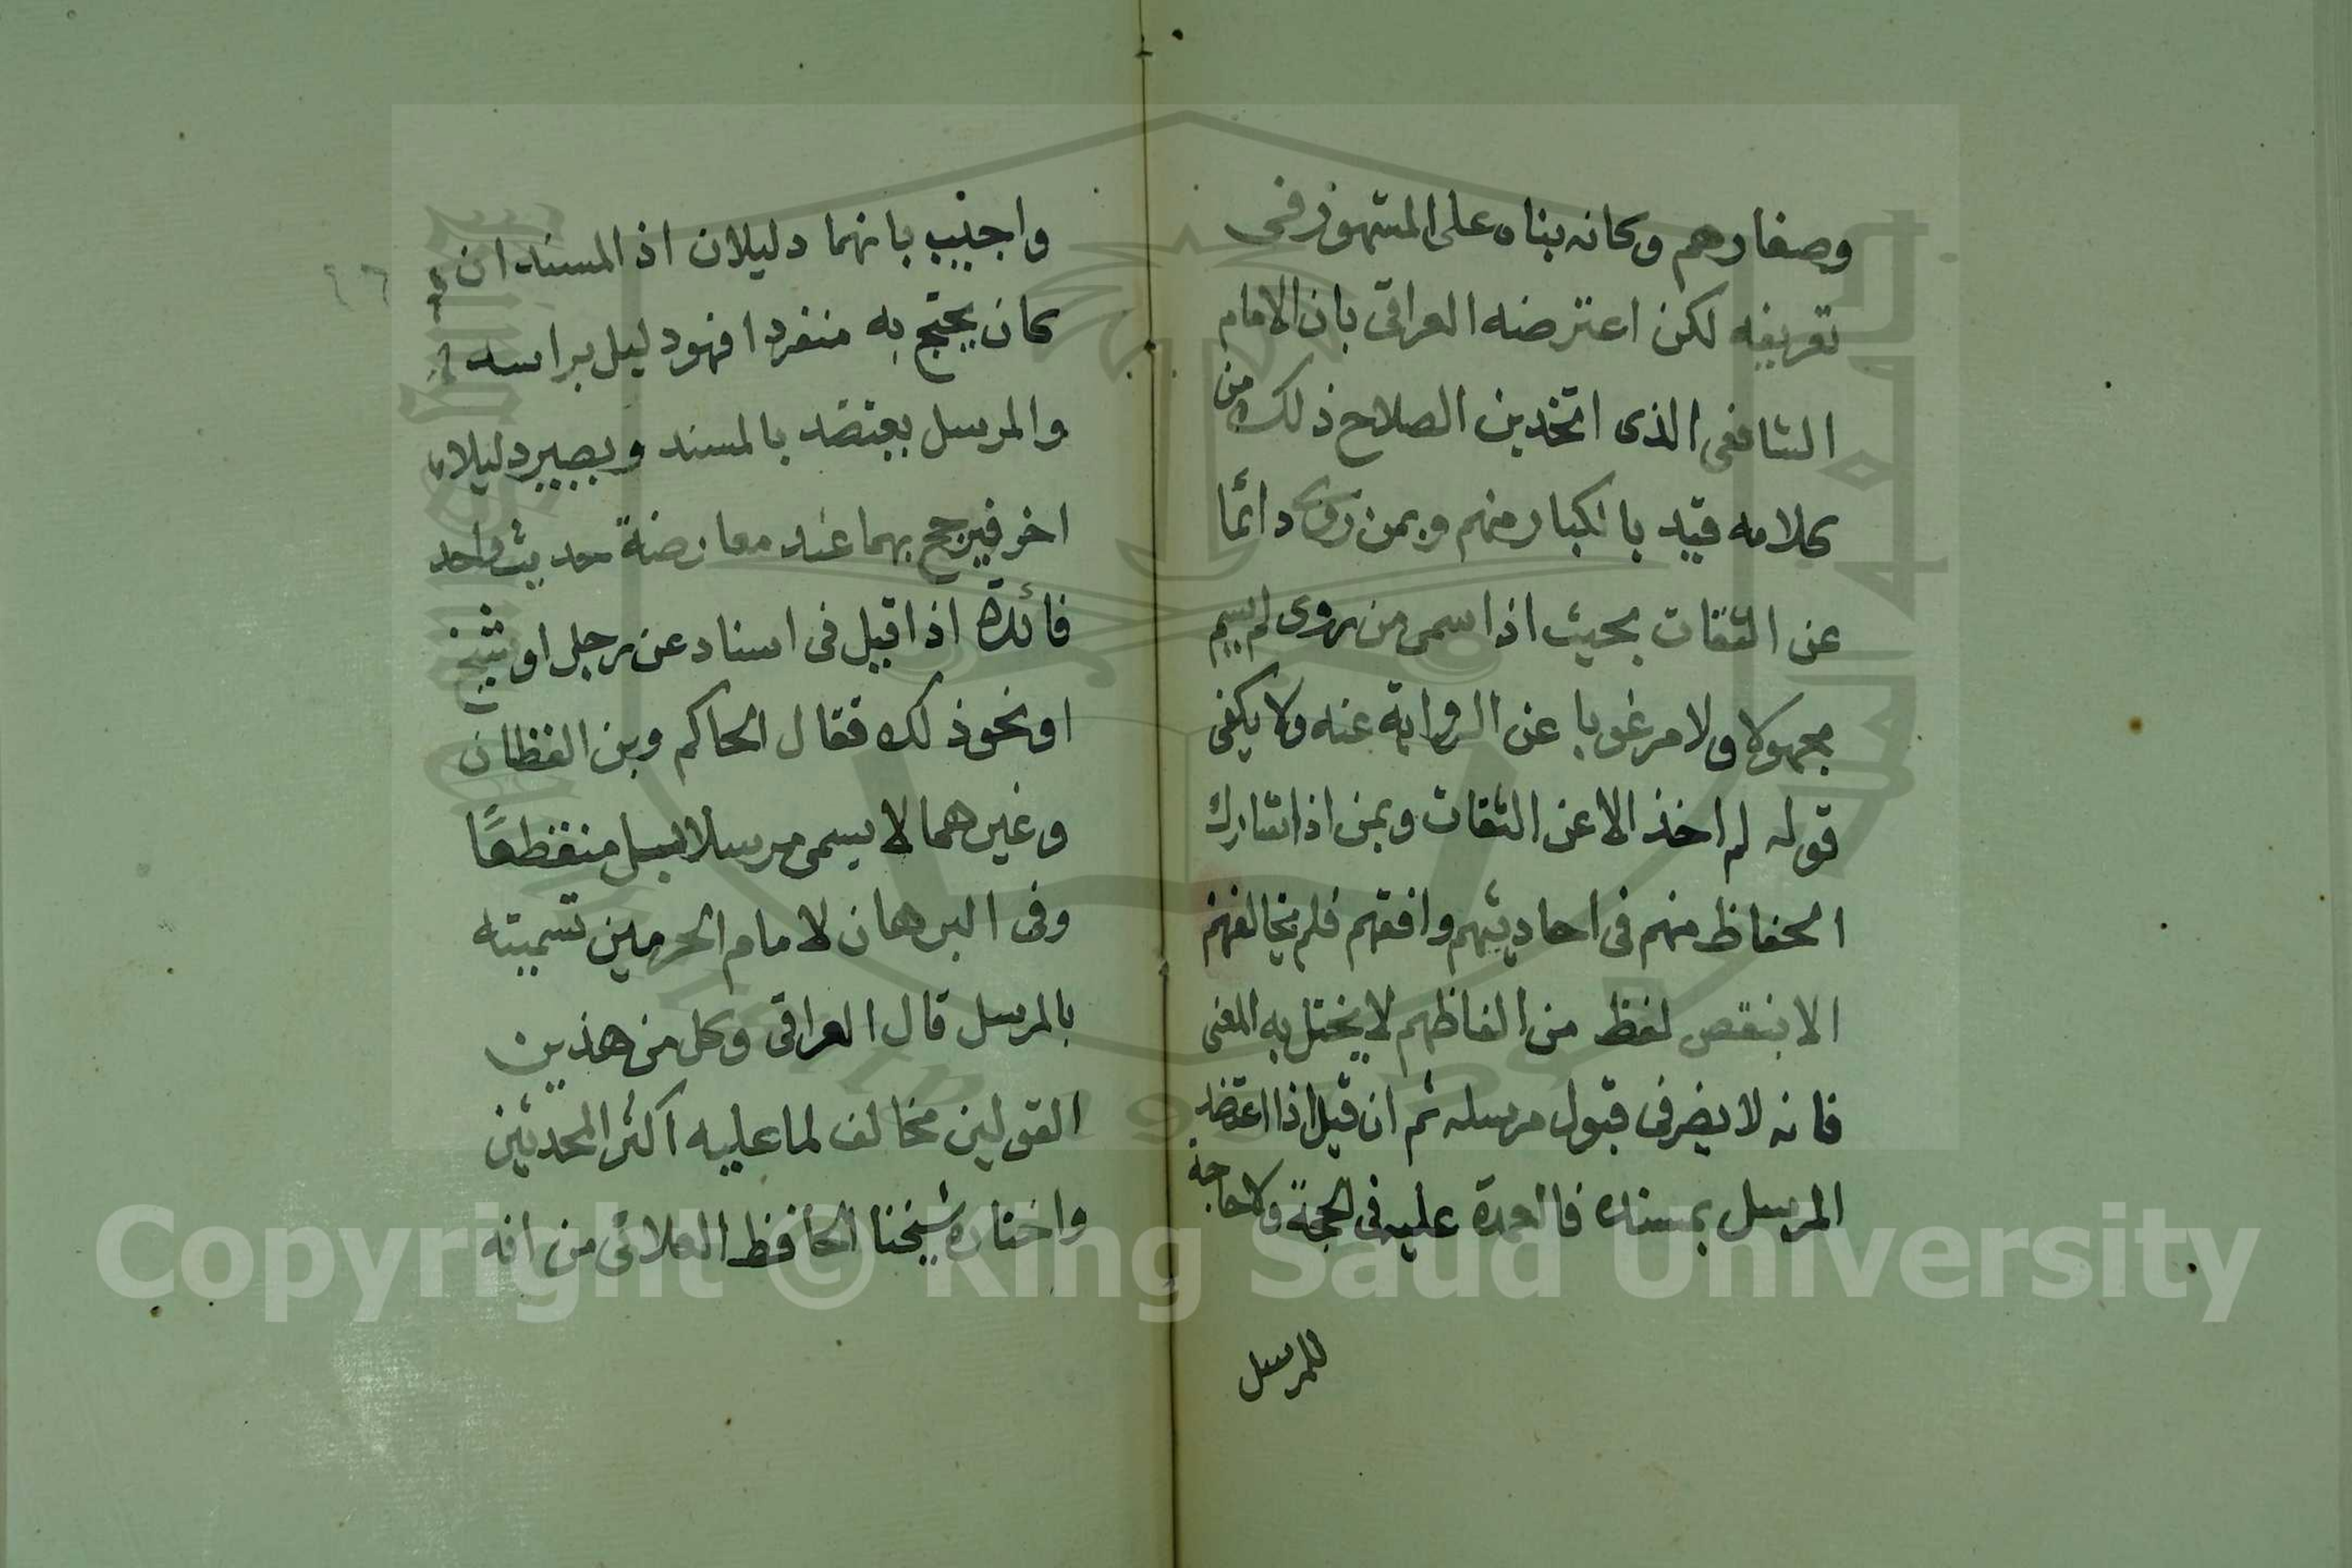 وصغارهم وكانه بناه على المشهور فى
تعريفه لكن اعترضه العراقى بان الامام
الشافعى الذى اتخذبن الصلاح ذلك من
كلامه قيد بالكبار منهم وبمن روى دائما
عن الثقات بحيث اذا سمى من روى لم يسم
مجهولا ولا مرغوبا عن الرواية عنه ولا يكفى
قوله لم اخذ الا عن الثقات وبمن اذا شارك
الحفاظ منهم فى احاديثهم وافقهم فلم يخالفهم
الا بنقص لفظ من الفاظهم لا يختل به المعنى
فانه لا يضر فى قبول مرسله ثم ان قيل اذا اعتضد
المرسل بمسنده فالعمدة عليه فى الحجة ولا حاجة
للمرسل
واجيب بانهما دليلان اذ المسند ان
كان يحتج به منفردا فهو دليل براسه
والمرسل يعتضد بالمسند ويصير دليلا
اخر فيرجح بهما عند معارضة حديث واحد
فائدة اذا قيل فى اسناد عن رجل او شيخ
او نحو ذلك فقال الحاكم وبن القطان
وغيرهما لا يسمى مرسلا بل منقطعًا
وفى البرهان لامام الحرمين تسميته
بالمرسل قال العراقى وكل من هذين
القولين مخالف لما عليه اكثر المحدثين
واختاره شيخنا الحافظ العلائى من انه
٢٦
Copyright © King Saud University
1957